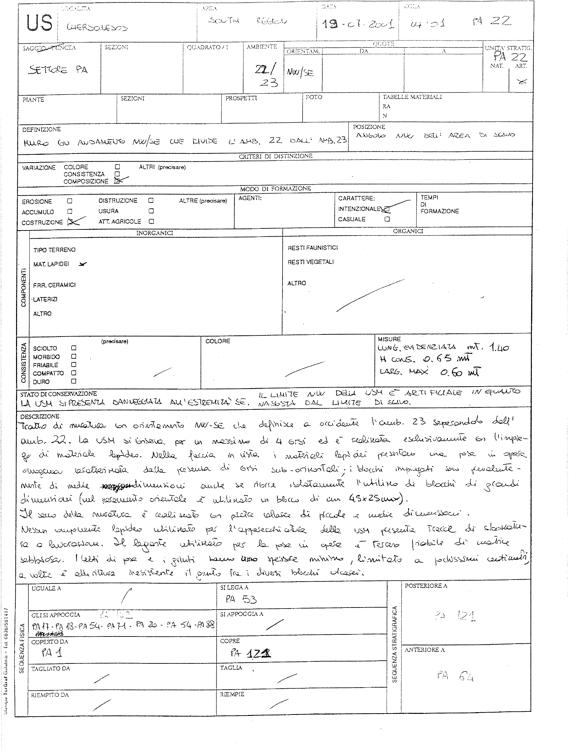 US
LOCALITÀ
CHERSONESOS
AREA
SOUTH REGION
DATA
19-07-2001
SIGLA
PA 22
SAGGIO/TRINCIA
SETTORE PA
SEZIONI
QUADRATO/I
AMBIENTE
22/23
ORIENTAM.
NW/SE
QUOTE
DA
A
UNITA' STRATIG.
PA 22
NAT. ART.
PIANTE
SEZIONI
PROSPETTI
FOTO
TABELLE MATERIALI
RA
N
DEFINIZIONE
MURO CON ANDAMENTO NW/SE CHE DIVIDE L'AMB. 22 DALL'AMB. 23
POSIZIONE
ANGOLO NW DELL'AREA DI SCAVO
CRITERI DI DISTINZIONE
VARIAZIONE COLORE ALTRI (precisare)
CONSISTENZA
COMPOSIZIONE
MODO DI FORMAZIONE
EROSIONE DISTRUZIONE ALTRE (precisare)
ACCUMULO USURA
COSTRUZIONE ATT. AGRICOLE
AGENTI:
CARATTERE:
INTENZIONALE
CASUALE
TEMPI
DI
FORMAZIONE
COMPONENTI
INORGANICI
TIPO TERRENO
MAT. LAPIDEI
FRR. CERAMICI
LATERIZI
ALTRO
ORGANICI
RESTI FAUNISTICI
RESTI VEGETALI
ALTRO
CONSISTENZA
SCIOLTO (precisare)
MORBIDO
FRIABILE
COMPATTO
DURO
COLORE
MISURE
LUNG. EVIDENZIATA mt. 1.40
H CONS. 0.65 mt
LARG. MAX 0.60 mt
STATO DI CONSERVAZIONE
IL LIMITE NW DELLA USM È ARTIFICIALE IN QUANTO
LA USM SI PRESENTA DANNEGGIATA ALL'ESTREMITÀ SE. NASCOSTA DAL LIMITE DI SCAVO.
DESCRIZIONE
Tratto di muratura con orientamento NW-SE che definisce a occidente l'amb. 23 separandolo dall'
amb. 22. La USM si conserva per un massimo di 4 corsi ed è realizzata esclusivamente con l'impie-
go di materiale lapideo. Nella faccia in vista i materiali lapidei presentano una posa in opera
omogenea caratterizzata dalla presenza di corsi sub-orizzontali; i blocchi impiegati sono prevalente-
mente di medie dimensioni anche se ricorre isolatamente l'utilizzo di blocchi di grandi
dimensioni (nel paramento orientale è utilizzato un blocco di cm 45x25).
Il sacco della muratura è realizzato con pietra calcarea di piccole e medie dimensioni.
Nessun componente lapideo utilizzato per l'apparecchiatura della USM presenta tracce di sbozzatu-
ra o lavorazione. Il legante utilizzato per la posa in opera è terroso friabile di matrice
sabbiosa. I letti di posa e i giunti hanno spessore minimo, limitato a pochissimi centimetri,
a volte è addirittura inesistente il giunto tra i diversi blocchi calcarei.
SEQUENZA FISICA
UGUALE A
SI LEGA A
PA 53
GLI SI APPOGGIA
PA 17 - PA 18 - PA 54 - PA 71 - PA 20 - PA 54 - PA 88
SI APPOGGIA A
COPERTO DA
PA 1
COPRE
PA 121
TAGLIATO DA
TAGLIA
RIEMPITO DA
RIEMPIE
SEQUENZA STRATIGRAFICA
POSTERIORE A
PA 121
ANTERIORE A
PA 64